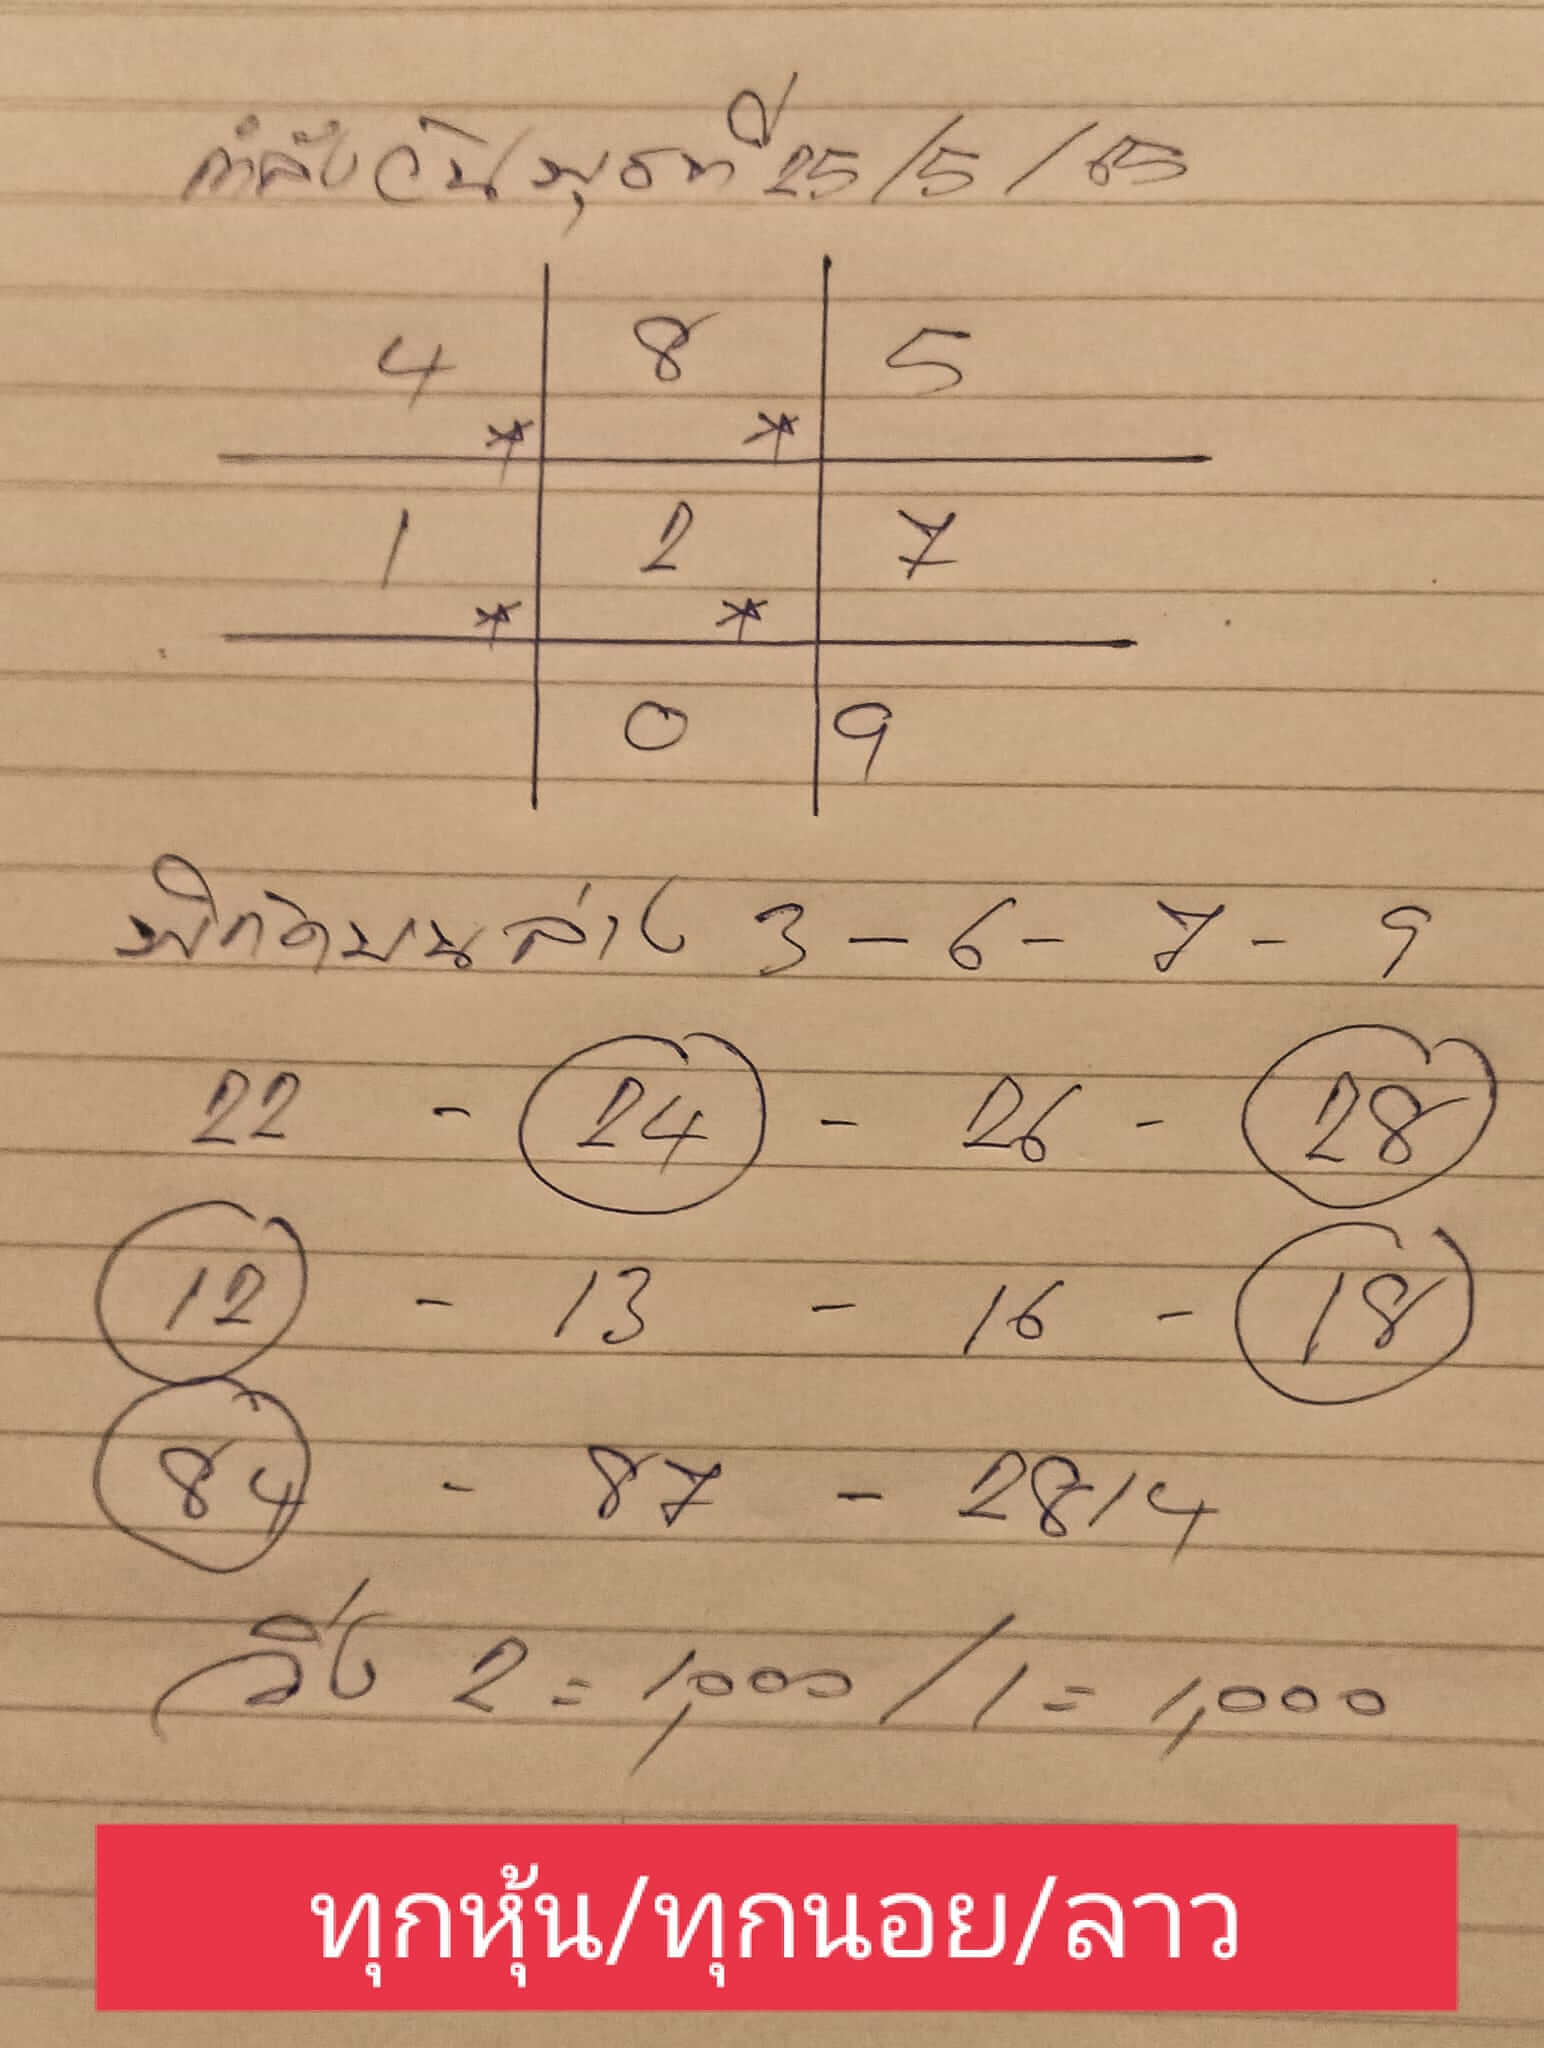 กำลังวันพุธที่ 25/5/65
4 8 5
* *
1 2 7
* *
0 9
พิกัดบนล่าง 3 - 6 - 7 - 9
22 - 24 - 26 - 28
12 - 13 - 16 - 18
84 - 87 - 2814
วิ่ง 2 = 1,000 / 1 = 1,000
ทุกหุ้น/ทุกนอย/ลาว